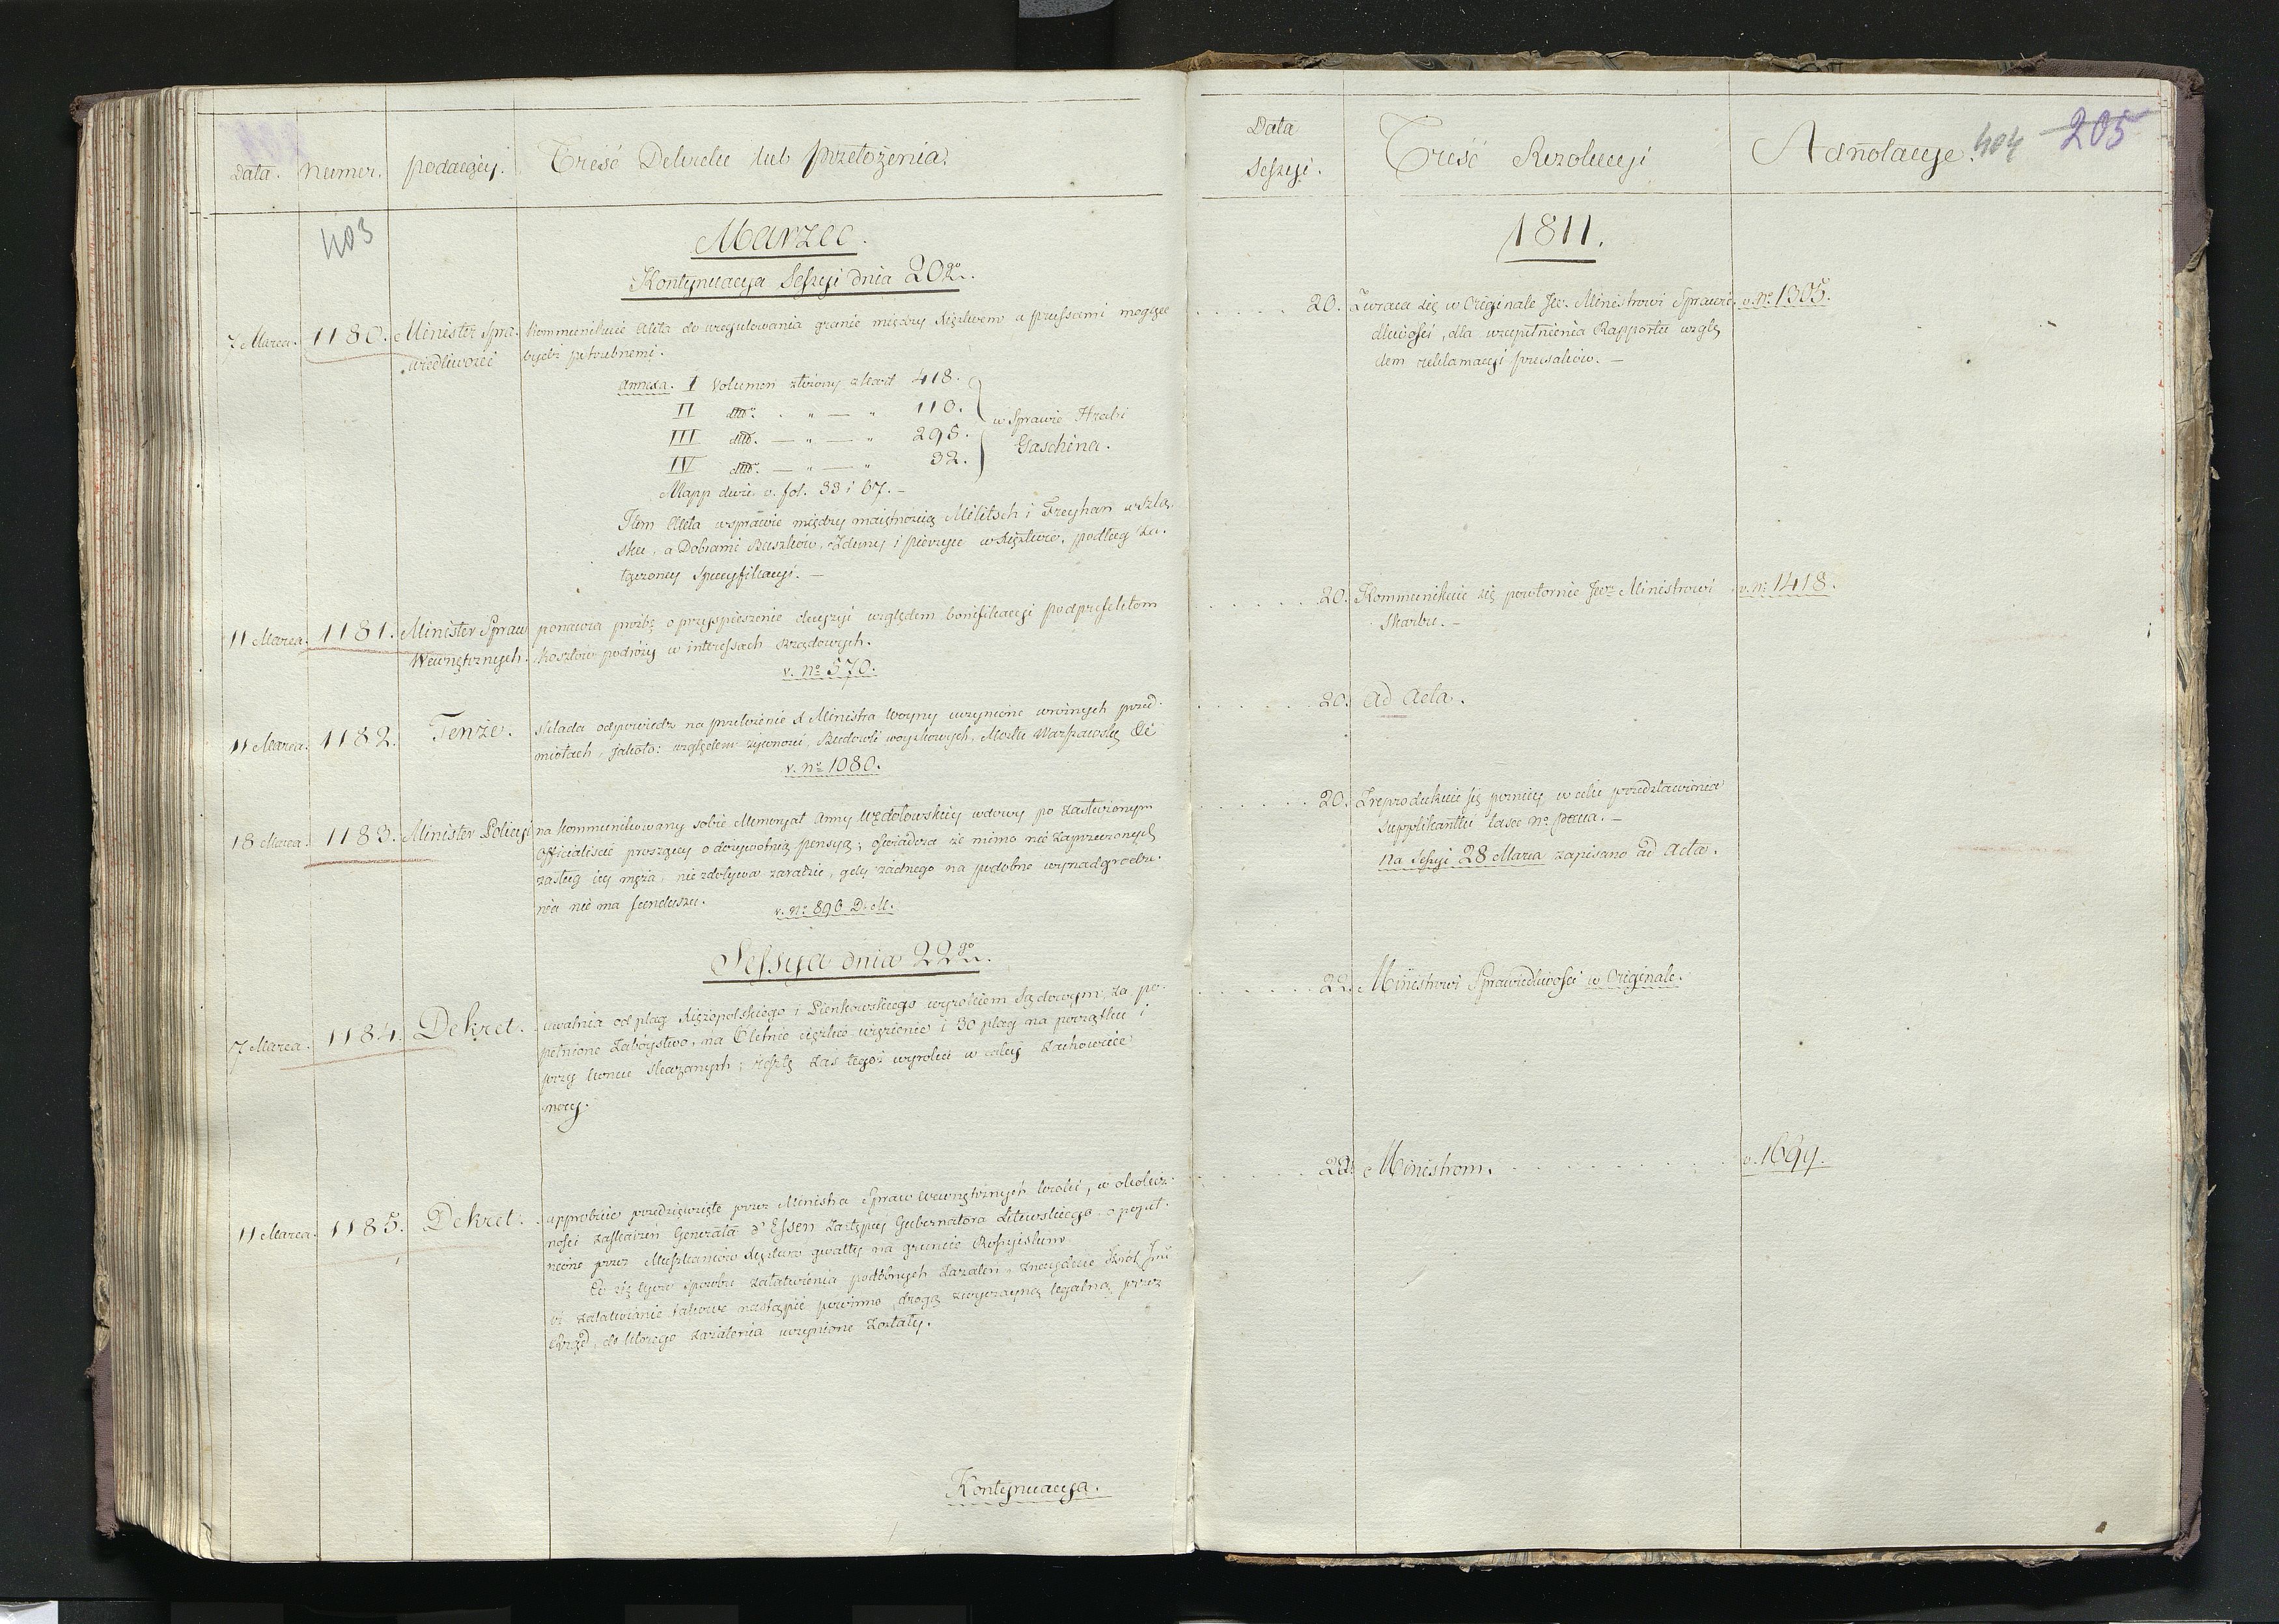 Data. Numer. podaiący. Treść Dekretu lub przełożenia.
403
Marzec.
Kontynuacya Sessyi dnia 20go.
7 Marca. 1180. Minister Spra- kommunikuie Akta do uregulowania granic między Xięstwem a prussami mogące
wiedliwości bydź potrzebnemi.
annexa. I Volumen złożony z kart 418.
II dito. " — " 110.
III dito. — " — " 295.
IV dito. — " — " 32.
w Sprawie Hrabi
Gaschina.
Mapp dwie v. fol. 33 i 67. –
Item Akta w sprawie między maiętnością Militsch i Freyhan w szlą-
sku, a Dobrami Baszków, Zduny i pierzyce w Xięstwie, podług za-
łączoney specyfikacyi. –
11 Marca. 1181. Minister Spraw ponawia prośbę o przyspieszenie decyzyi względem bonifikacyi podprefektom
Wewnętrznych. kosztów podróży w interessach Rządowych.
v. No 570.
11 Marca. 1182. Tenże. składa odpowiedz na przełożenie X Ministra Woyny uczynione w różnych przed-
miotach, jakoto: względem żywności, Budowli woyskowych, Mostu Warszawskiego &c
v. No 1080.
18 Marca. 1183. Minister Policyi na kommunikowany sobie Memoryał Anny Wędołowskiey wdowy po zasłużonym
Officialiście proszącey o dożywotnią pensyą; oświadcza że mimo nie zaprzeczonych
zasług iey męża, nie zdoływa zaradzić, gdy żadnego na podobne wynadgrodze-
nia nie ma funduszu.
v. No 896 D. M.
Sessya dnia 22go.
7 Marca. 1184. Dekret. uwalnia od plag Xiężopolskiego i Pienkowskiego wyrokiem Sądowym, za po-
pełnione zabóystwo, na 6 letnie ciężkie więzienie i 30 plag na początku i
przy końcu skazanych; resztę zas tegoż wyroku w całey zachowuie
mocy.
11 Marca. 1185. Dekret. approbuie przedsięwzięte przez Ministra Spraw Wewnętrznych kroki, w okolicz-
ności zaskarżeń Generała d'Essen zastępcy Gubernatora Litewskiego o popeł-
nione przez Mieszkańców Xięstwa gwałty na gruncie Rossyiskim.
Co się tycze sposobu załatwienia podobnych zażaleń, znayduie Król Jmć
iż załatwianie takowe nastąpić powinno drogą zwyczayną legalną, przez
Urząd, do którego zażalenia uczynione zostały.
Kontynuacya.
Data
Sessyi. Treść Rezolucyi Adnotacye. 404 205
1811.
20. Zwraca się w Originale Jw. Ministrowi Sprawie- v. No 1305.
dliwości, dla uzupełnienia Rapportu wzglę-
dem reklamacyi prusaków. –
20. Kommunikuie się powtornie Jwu Ministrowi v. No 1418.
Skarbu. –
20. ad Acta.
20. Zreprodukuie się pozniey w celu przedstawienia
supplikantki łasce No pana. –
Na Sessyi 28 Marca zapisano ad Acta.
22. Ministrowi Sprawiedliwości w Originale.
22. Ministrom. v. 1699.